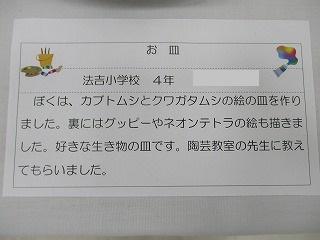 お 皿
法吉小学校 4年
ぼくは、カブトムシとクワガタムシの絵の皿を作り
ました。裏にはグッピーやネオンテトラの絵も描きま
した。好きな生き物の皿です。陶芸教室の先生に教え
てもらいました。